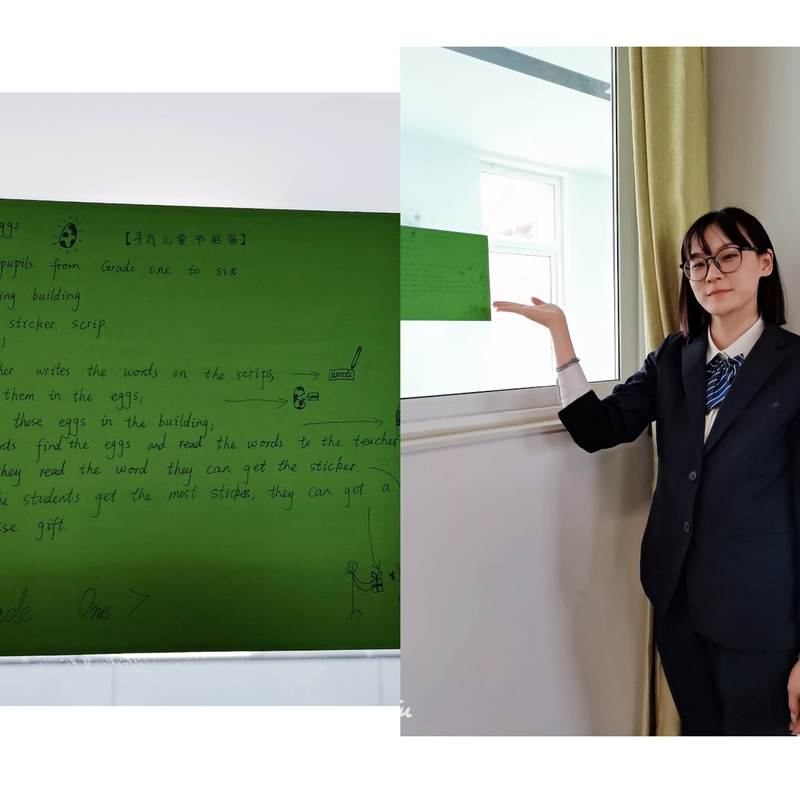 eggs
【寻找儿童节彩蛋】
pupils from Grade one to six
ing building
sticker scrip.
her writes the words on the scrips;
words
them in the eggs;
those eggs in the building;
nts find the eggs and read the words to the teacher
they read the word they can get the sticker.
he students get the most stickers, they can get a
ise gift.
ade One >